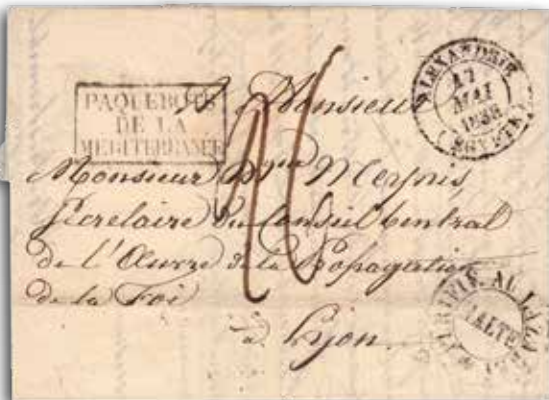 PAQUEBOTS
DE LA
MEDITERRANEE
ALEXANDRIE
17
MAI
1838
(EGYPTE)
A Monsieur
Monsieur Meynis
Secretaire du Conseil Central
de l'Œuvre de la Propagation
de la Foi
à Lyon
PURIFIÉ AU LAZARET
MALTE